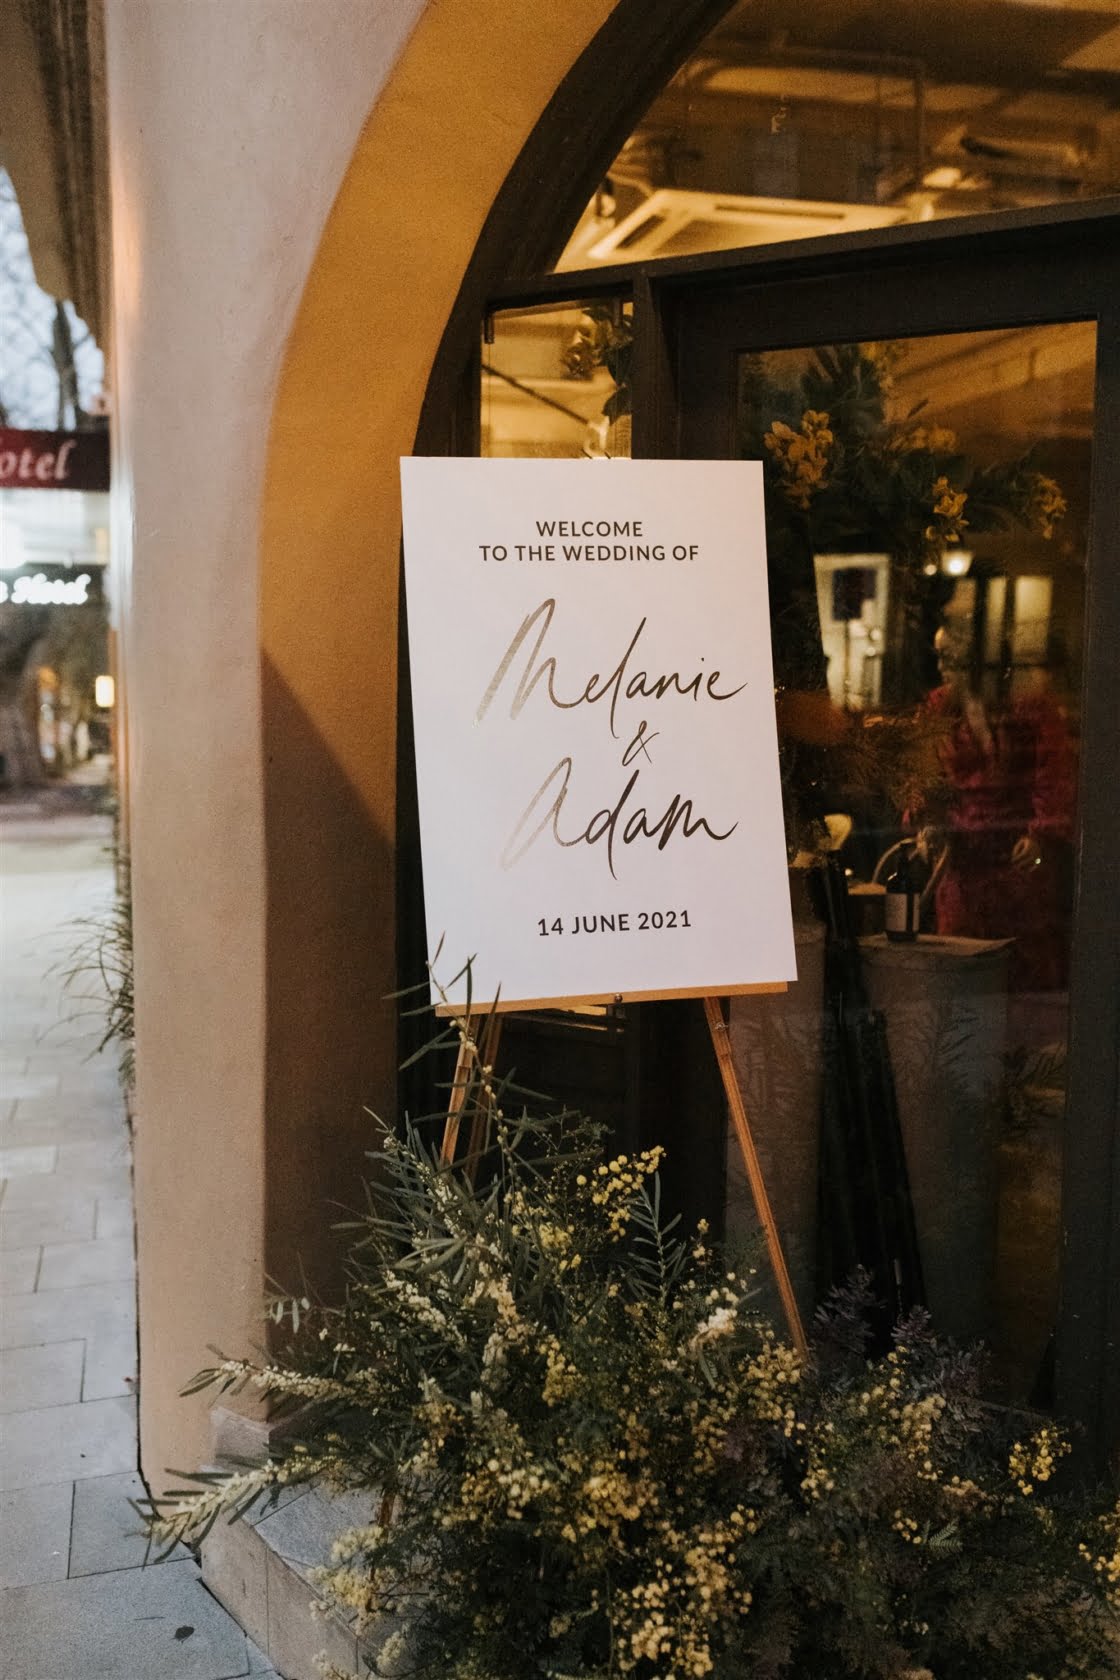 otel
Hotel
WELCOME
TO THE WEDDING OF
Melanie
&
Adam
14 JUNE 2021